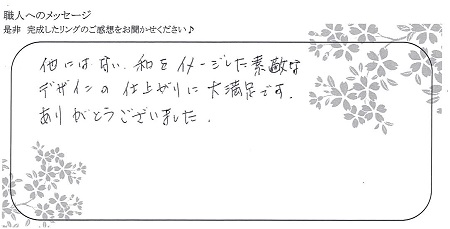 職人へのメッセージ
是非 完成したリングのご感想をお聞かせください♪
他にはない、和をイメージした素敵な
デザインの仕上がりに大満足です。
ありがとうございました。